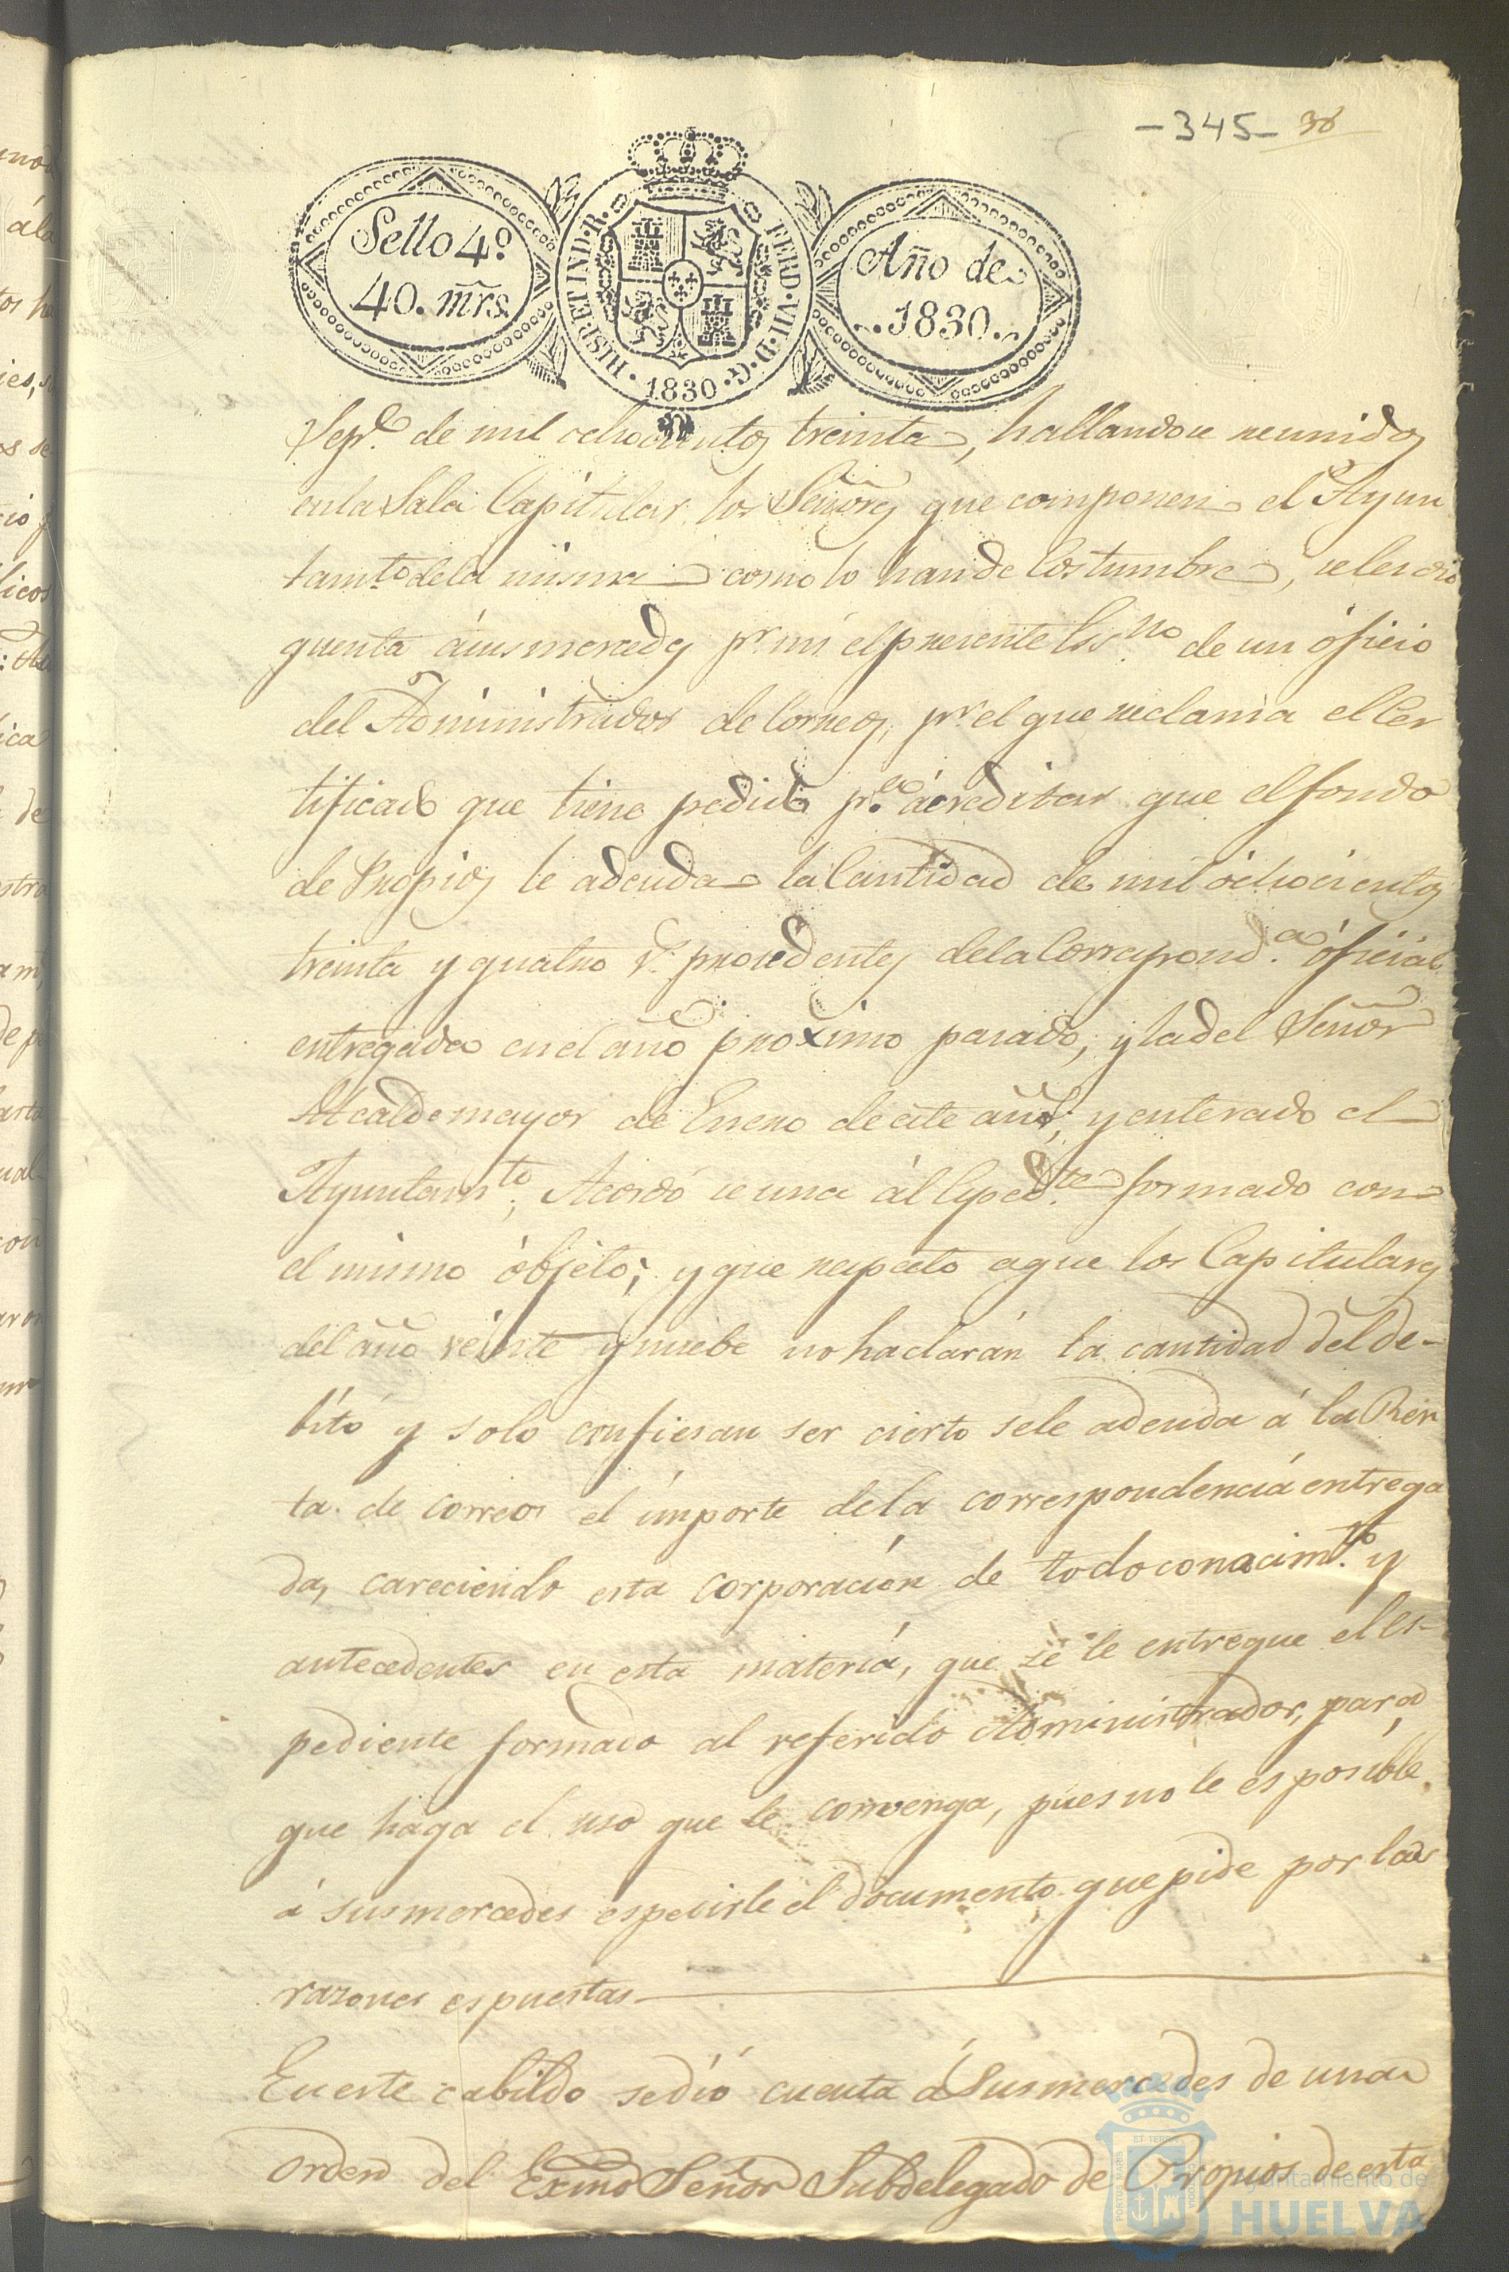 -345- 38
Sello 4º
40. mrs.
HISP. ET IND. R. FERD. VII. D. G. 1830.
Año de
1830.
Sepre. de mil ochocientos treinta, hallandose reunidos
en la Sala Capitular los Señores que componen el Ayun
tamto. de la misma como lo han de Costumbre, se les dio
quenta á sus mercedes pr. mi el presente Essno de un óficio
del Administrador de Correos, pr. el que reclama el Cer
tificado que tiene pedido pra. ácreditar que el fondo
de Propios le adeuda la Cantidad de mil óchocientos
treinta y quatro rs. procedentes de la Corresponda. óficial
entregada en el año proximo pasado, y la del Señor
Alcalde mayor de Enero de este año; y enterado el
Ayuntamto., Acordó se una ál Espedte. formado con
el mismo óbjeto; y que respecto a que los Capitulares
del año veinte y nuebe no haclarán la cantidad del de-
bito y solo confiesan ser cierto se le adeuda á la Ren
ta de Correos el importe de la correspondencia entrega
da, careciendo esta corporación de todo conocimto. y
antecedentes en esta materia, que se le entregue el es-
pediente formado al referido Administrador, para
que haga el uso que le convenga, pues no le es posible
á sus mercedes espedirle el documento que pide por las
razones espuestas
En este cabildo se dió cuenta á Sus mercedes de una
orden del Exmo Señor Subdelegado de Propios de esta
Ayuntamiento de
HUELVA